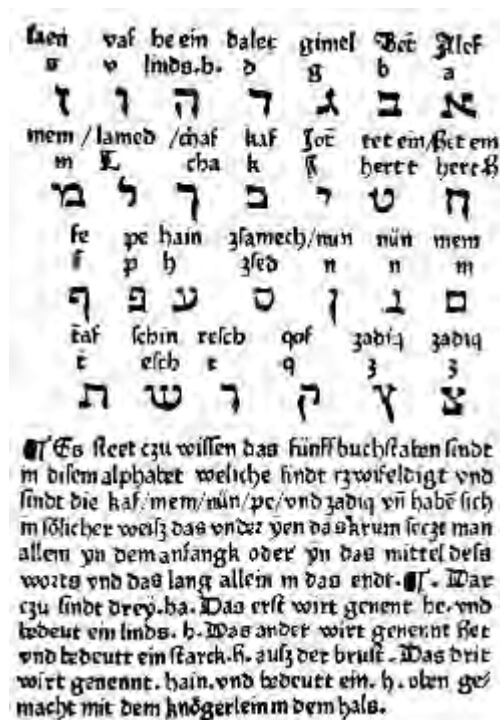 saen vaf he ein dalet gimel Bet Alef
s v linds.h. d g b a
א ב ג ד ה ו ז
mem / lamed / chaf kaf Jot tet ein / het ein
m L cha k J hert t hert h
ח ט י כ ך ל מ
fe pe hain zsamech / nun nün mem
f p h zsed n n m
ם נ ן ס ע פ ף
taf schin resch qof zadiq zadiq
t esch r q z z
צ ץ ק ר ש ת
¶ Es steet czu wissen das fünff buchstaben sindt
in disem alphabet weliche sindt czwifeldigt vnd
sindt die kaf / mem / nün / pe / vnd zadiq vñ habē sich
in sölicher weisz das vnder yen das krum seczt man
allein yn dem anfangk oder yn das mittel dess
worts vnd das lang allein in das endt. ¶. Dar
czu sindt drey. ha. Das erst wirt genent he. vnd
bedeut ein linds. h. Das ander wirt genennt het
vnd bedeutt ein starck. h. ausz der brust. Das drit
wirt genennt. hain. vnd bedeutt ein. h. oben ge/
macht mit dem knögerlein in dem hals.